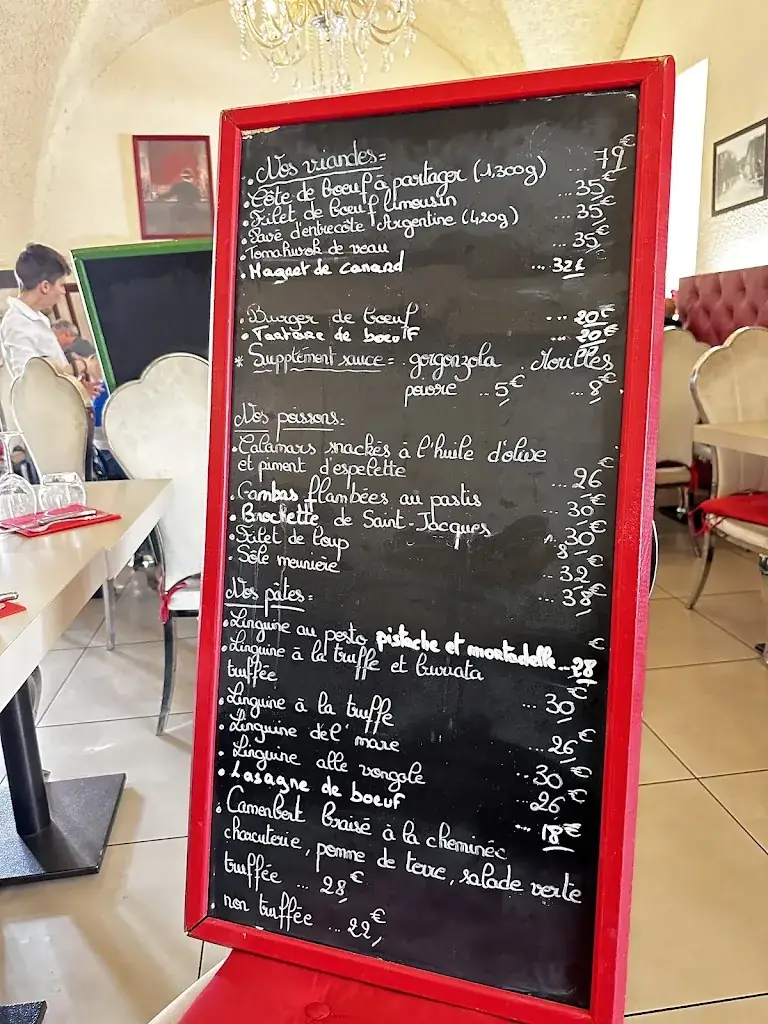 • Nos viandes =
• Côte de boeuf à partager (1,300g) ... 79€
• Filet de boeuf limousin ... 35€
• Pavé d'entrecôte Argentine (420g) ... 35€
• Tomahwok de veau ... 35€
• Magnet de canard ... 32€
• Burger de boeuf ... 20€
• Tartare de boeuf ... 20€
* Supplément sauce = gorgonzola Morilles
poivre .. 5€ ... 8€
Nos poissons:
• Calamars snackés à l'huile d'olive
et piment d'espelette ... 26€
• Gambas flambées au pastis ... 30€
• Brochette de Saint-Jacques 30€
• Filet de loup ... 32€
• Sôle meunière ... 38€
Nos pâtes =
• Linguine au pesto pistache et mortadelle ... 28€
• Linguine à la truffe et burrata
truffée ... 30€
• Linguine à la truffe ... 26€
• Linguine del' mare ... 30€
• Linguine alle vongole ... 26€
• Lasagne de boeuf ... 18€
• Camenbert braisé à la cheminée
charcuterie, pomme de terre, salade verte
truffée ... 28€
non truffée ... 22€